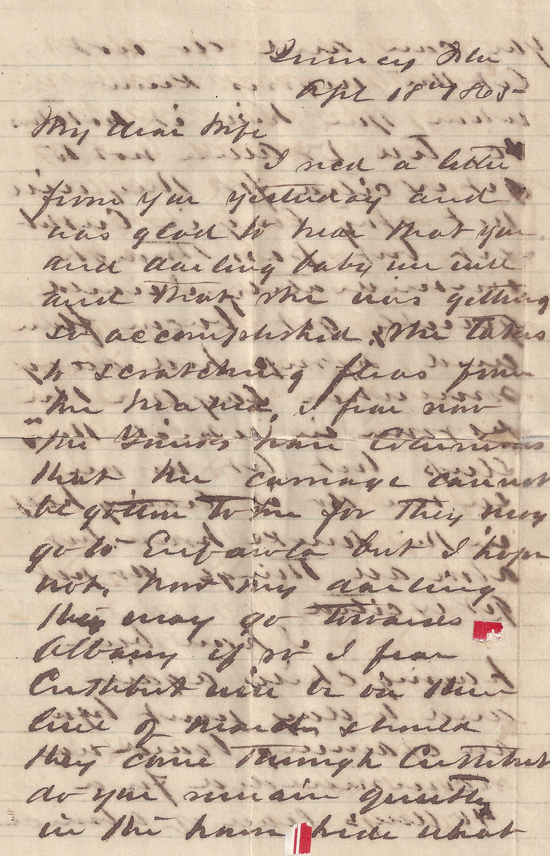 Quincy Fla
Apl 18th 1865
My dear Wife
I recd a letter
from you yesterday and
was glad to hear that you
and darling baby are well
and that she was getting
so accomplished, She takes
to scratching fleas from
the I fear now
the Yanks have Columbus
that the carriage cannot
be gotten to me for they may
go to Eufaula but I hope
not, now my darling
they may go towards
Albany if so I fear
Cuthbert will be on their
line of march should
they come through Cuthbert
do you remain quietly
in the house hide what